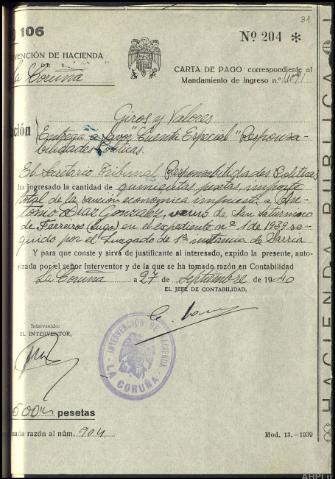 31
106
Nº 204 *
VENCIÓN DE HACIENDA
DE
La Coruña
CARTA DE PAGO correspondiente al
Mandamiento de ingreso n.º
Giros y Valores
ción
"Cuenta Especial" Responsa-
bilidades Políticas.
El Tribunal Responsabilidades Políticas
ha ingresado la cantidad de quinientas pesetas importe
total de la sanción económica impuesta a An-
tonio Díaz González, vecino de San Saturnino
de Ferreiros (Lugo) en el expediente nº 1 de 1939 se-
guido por el Juzgado de 1ª instancia de Sarria
Y para que conste y sirva de justificante al interesado, expido la presente, auto-
rizada por el señor Interventor y de la que se ha tomado razón en Contabilidad
La Coruña a 27 de septiembre de 1940
EL JEFE DE CONTABILIDAD,
Intervenido:
EL INTERVENTOR,
INTERVENCION DE HACIENDA
LA CORUÑA
500 pesetas
mada razón al núm. 904
Mod. 13.-1939